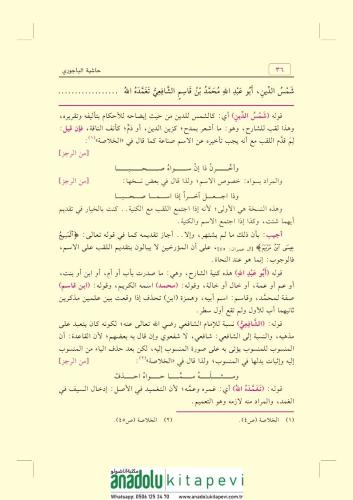 ٣٦
حاشية الباجوري
شَمْسُ الدِّينِ، أَبُو عَبْدِ اللهِ مُحَمَّدُ بْنُ قَاسِمٍ الشَّافِعِيُّ تَغَمَّدَهُ اللهُ ..................
قوله (شَمْسُ الدِّينِ) أي: كالشمس للدين من حيث إيضاحه للأحكام بتأليفه وتقريره،
وهذا لقب للشارح، وهو: ما أشعر بمدح؛ كزين الدين، أو ذمٍّ؛ كأنف الناقة، فإن قيل:
لِمَ قدَّم اللقب مع أنه يجب تأخيره عن الاسم صناعة كما قال في «الخلاصة»(١):
[من الرجز]
وأخِّـرَنْ ذا إنْ سـواهُ صـحـبـا
والمراد بسواه: خصوص الاسم؛ ولذا قال في بعض نسخها:
[من الرجز]
وذا اجـعـل آخـراً إذا اسـمـا صـحـبـا
وهذه النسخة هي الأولى؛ لأنه إذا اجتمع اللقب مع الكنية.. كنت بالخيار في تقديم
أيهما شئت، وكذا إذا اجتمع الاسم والكنية.
أجيب: بأن ذلك ما لم يشتهر، وإلا.. أجاز تقديمه كما في قوله تعالى: ﴿الْمَسِيحُ
عِيسَى ابْنُ مَرْيَمَ﴾ على أن المؤرخين لا يبالون بتقديم اللقب على الاسم،
فالوجوب: إنما هو عند النحاة.
قوله (أَبُو عَبْدِ اللهِ) هذه كنية الشارح، وهي: ما صدرت بأب أو أم، أو ابن أو بنت،
أو عم أو عمة، أو خال أو خالة، وقوله: (محمد) اسمه الكريم، وقوله: (ابن قاسم)
صفة لمحمَّد، وقاسم: اسم أبيه، وهمزة (ابن) تحذف إذا وقعت بين علمين مذكرين
ثانيهما أب للأول ولم تقع أول سطر.
قوله: (الشَّافِعِيُّ) نسبة للإمام الشافعي رضي الله تعالى عنه؛ لكونه كان يتعبد على
مذهبه، والنسبة إلى الشافعي: شافعي، لا شفعوي وإن قال به بعضهم؛ لأن القاعدة: أن
المنسوب للمنسوب يؤتى به على صورة المنسوب إليه، لكن بعد حذف الياء من المنسوب
إليه وإثبات بدلها في المنسوب؛ ولذا قال في «الخلاصة»(٢):
[من الرجز]
ومـثـلَـهُ مـمَّـا حـواهُ احـذفْ
قوله: (تَغَمَّدَهُ اللهُ) أي: غمره وعمّه؛ لأن التغميد في الأصل: إدخال السيف في
الغمد، والمراد منه لازمه وهو التعميم.
(١) الخلاصة (ص٤).
(٢) الخلاصة (ص٤٥).
مكتبة اناضولو
anadolu kitapevi
Whatsapp: 0506 125 34 70 www.anadolukitapevi.com.tr